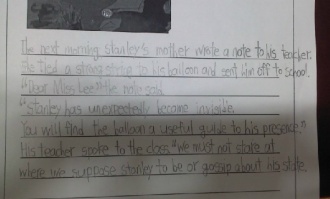 The next morning Stanley's mother wrote a note to his teacher.
She tied a strong string to his balloon and sent him off to school.
"Dear Miss Lee" the note said.
"Stanley has unexpectedly become invisible.
You will find the balloon a useful guide to his presence."
His teacher spoke to the class. "We must not stare at
where we suppose Stanley to be or gossip about his state.